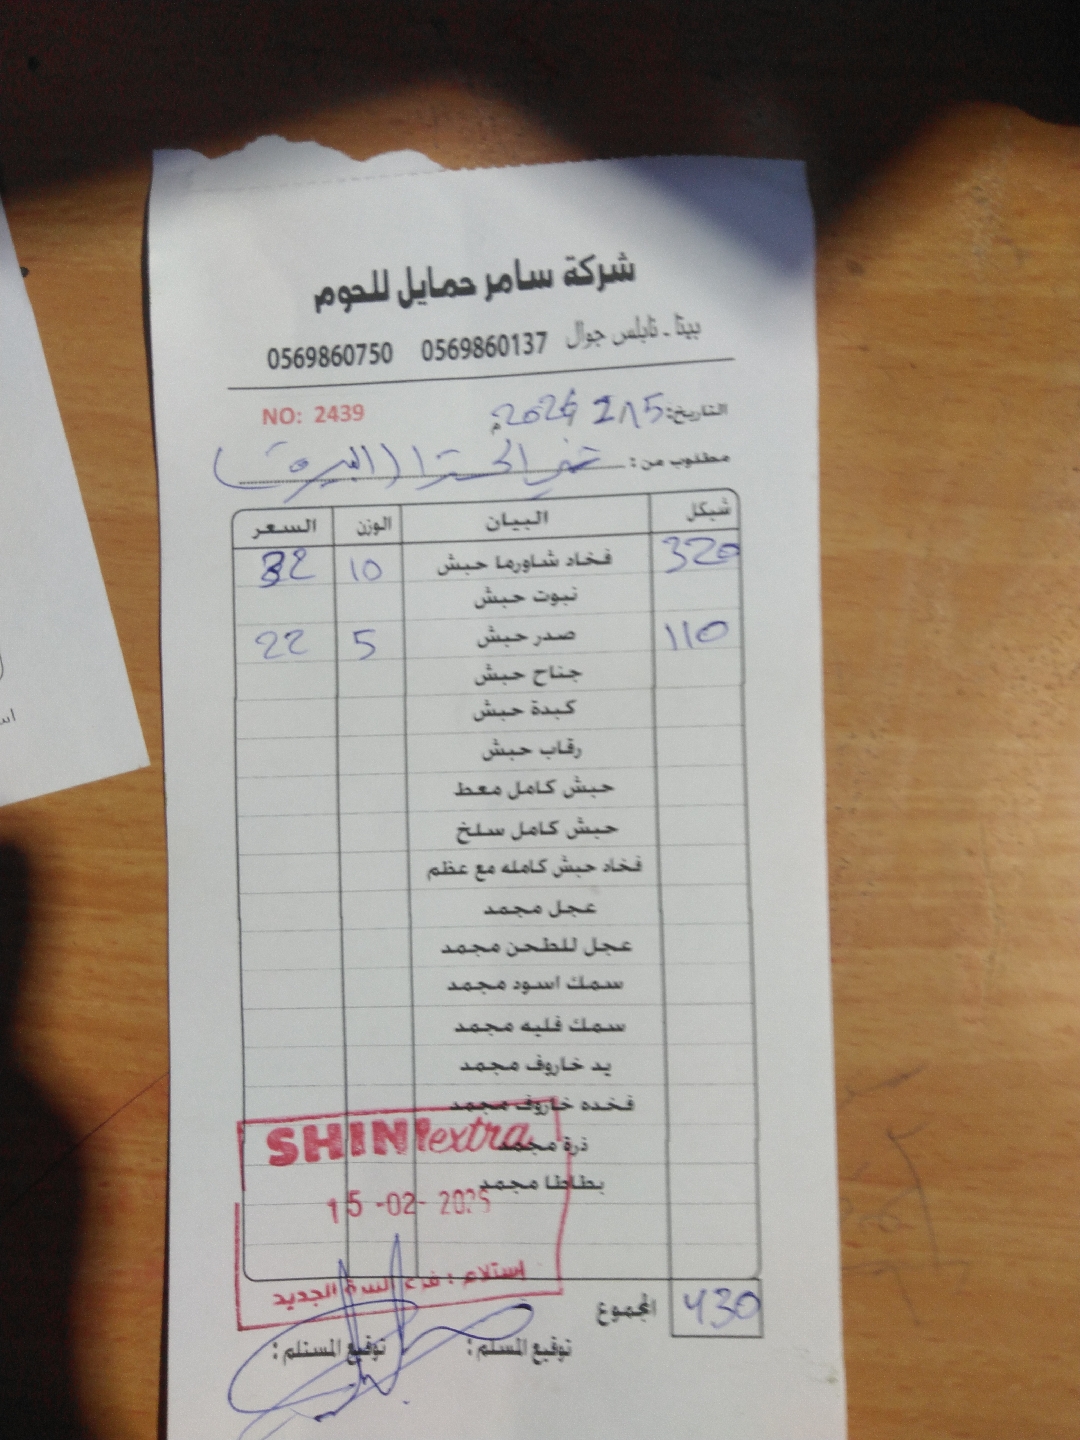 شركة سامر حمايل للحوم
بيتا - نابلس جوال 0569860137 0569860750
NO: 2439
التاريخ: 15/2/2026م
مطلوب من: اكسترا (البيرة)
شيكل البيان الوزن السعر
320 فخاد شاورما حبش 10 32
نبوت حبش
110 صدر حبش 5 22
جناح حبش
كبدة حبش
رقاب حبش
حبش كامل معط
حبش كامل سلخ
فخاد حبش كامله مع عظم
عجل مجمد
عجل للطحن مجمد
سمك اسود مجمد
سمك فليه مجمد
يد خاروف مجمد
فخده خاروف مجمد
ذرة مجمد
بطاطا مجمد
SHINI extra
15-02-2025
إستلام : فرع الجديد
المجموع 430
توقيع المسلم : توقيع المستلم :